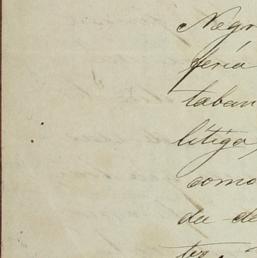 Negr
feria
taban
litiga,
como
du de
ter